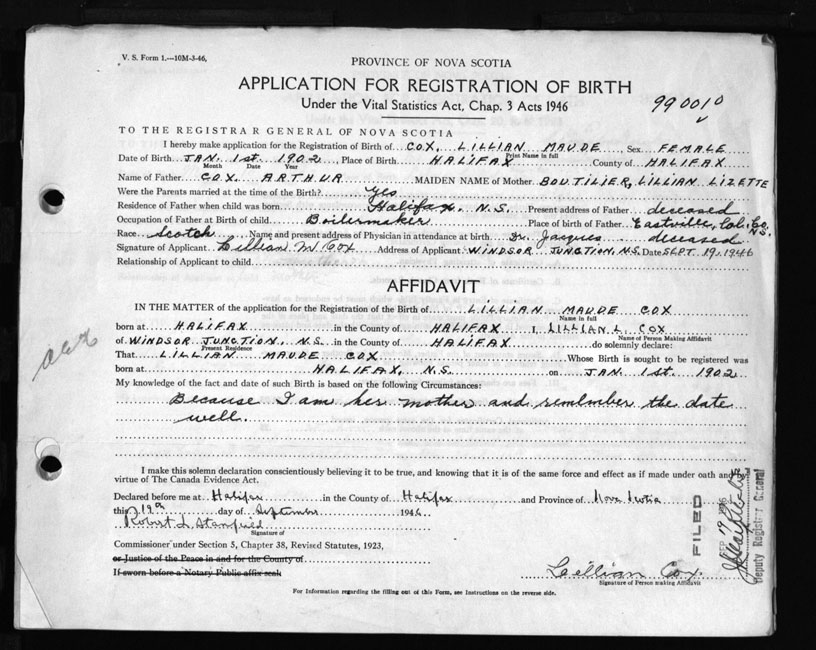 V. S. Form 1.—10M-3-46.
PROVINCE OF NOVA SCOTIA
APPLICATION FOR REGISTRATION OF BIRTH
Under the Vital Statistics Act, Chap. 3 Acts 1946
990010
TO THE REGISTRAR GENERAL OF NOVA SCOTIA
I hereby make application for the Registration of Birth of COX, LILLIAN MAUDE, Sex FEMALE
Print Name in full
Date of Birth JAN. 1st. 1902, Place of Birth HALIFAX County of HALIFAX
Month Date Year
Name of Father COX. ARTHUR MAIDEN NAME of Mother BOUTILIER, LILLIAN LIZETTE
Were the Parents married at the time of the Birth? Yes
Residence of Father when child was born Halifax. N.S. Present address of Father deceased
Occupation of Father at Birth of child Boilermaker Place of birth of Father Eastville, Col. Co. N.S.
Race Scotch Name and present address of Physician in attendance at birth Dr. Jacques deceased
Signature of Applicant Lillian M Cox Address of Applicant WINDSOR JUNCTION, N.S. Date SEPT 19, 1946
Relationship of Applicant to child
AFFIDAVIT
IN THE MATTER of the application for the Registration of the Birth of LILLIAN MAUDE COX
Name in full
born at HALIFAX in the County of HALIFAX I, LILLIAN L. COX
Name of Person Making Affidavit
of WINDSOR JUNCTION, N.S. in the County of HALIFAX do solemnly declare:
Present Residence
That LILLIAN MAUDE COX Whose Birth is sought to be registered was
born at HALIFAX, N.S. on JAN. 1st. 1902
My knowledge of the fact and date of such Birth is based on the following Circumstances:
Because I am her mother and remember the date
well.
I make this solemn declaration conscientiously believing it to be true, and knowing that it is of the same force and effect as if made under oath and by
virtue of The Canada Evidence Act.
Declared before me at Halifax in the County of Halifax and Province of Nova Scotia
this 19th day of September 1946
Robert L. Stanfield
Signature of
Commissioner under Section 5, Chapter 38, Revised Statutes, 1923,
or Justice of the Peace in and for the County of
If sworn before a Notary Public affix seal
Lillian Cox
Signature of Person making Affidavit
For Information regarding the filling out of this Form, see Instructions on the reverse side.
FILED
SEP 19 1946
Deputy Registrar General